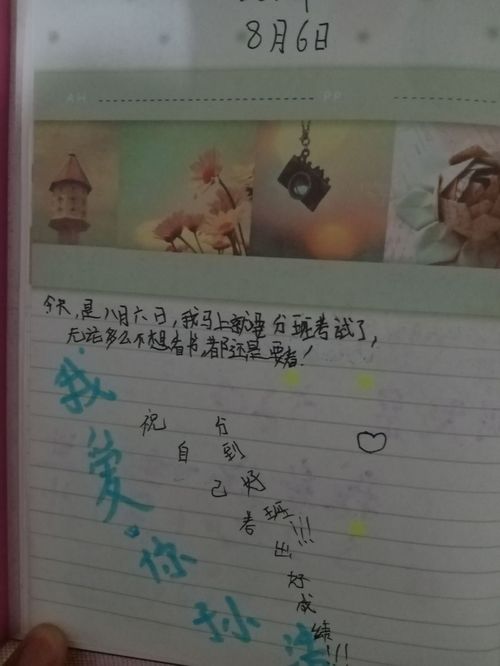 8月6日
AH PP
今天,是八月六日,我马上就要分班考试了,
无论多么不想看书,都还是要看!
祝自己考出好成绩!!!
分到好班!!!
我爱你孙